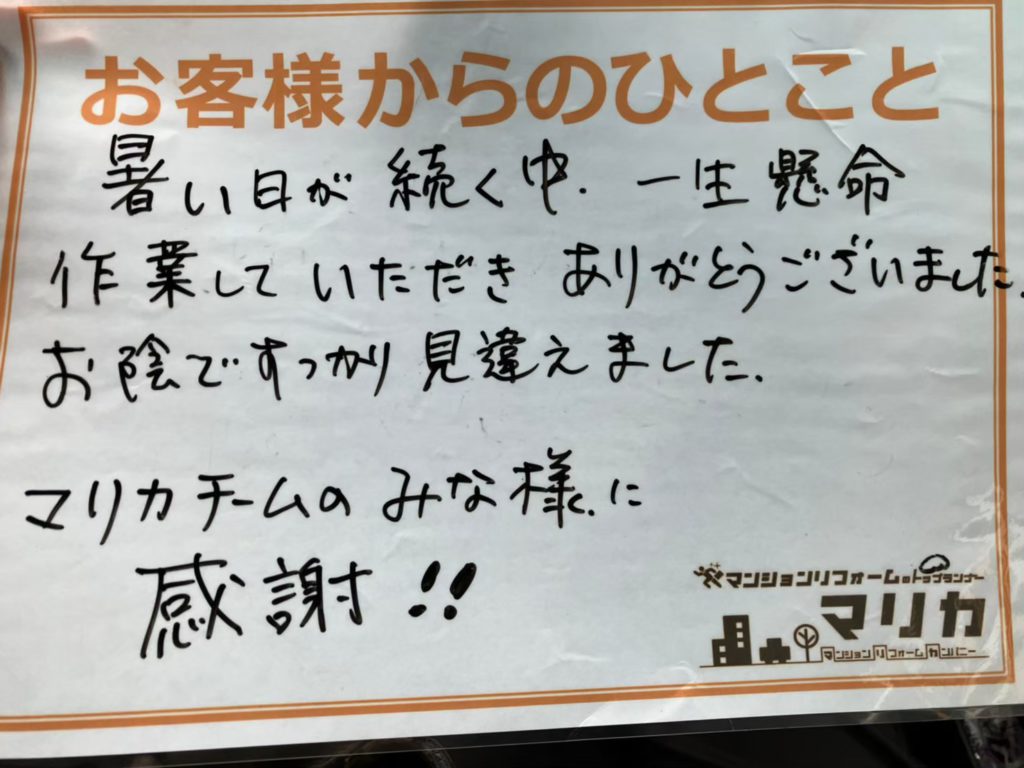 お客様からのひとこと
暑い日が続く中、一生懸命
作業していただきありがとうございました。
お陰ですっかり見違えました。
マリカチームのみな様に
感謝!!
マンションリフォームのトップランナー
マリカ
マンションリフォームカンパニー